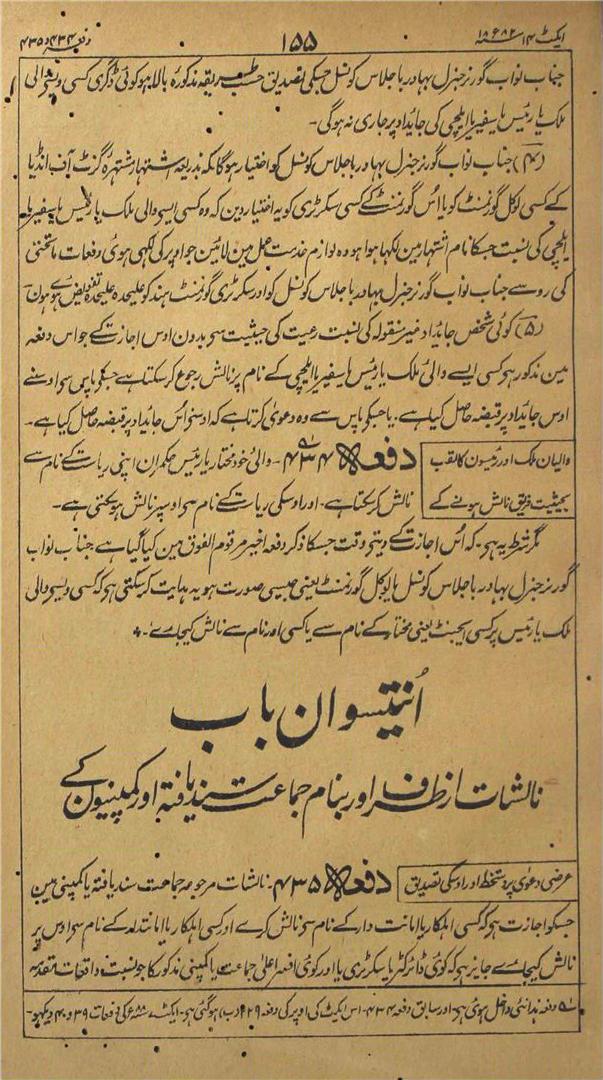 ایکٹ ۱۴ سنہ ۱۸۸۲ ۱۵۵ دفعہ ۴۳۴ و ۴۳۵
جناب نواب گورنر جنرل بہادر باجلاس کونسل جسکی تصدیق حسب طریقہ مذکورہ بالا ہو کوئی ڈگری کسی ویسے والی
ملک یا رئیس یا سفیر یا ایلچی کی جائداد پر جاری نہ ہوگی۔
(۴) جناب نواب گورنر جنرل بہادر باجلاس کونسل کو اختیار ہوگا کہ بذریعہ اشتہار مشتہرہ گزٹ آف انڈیا
کے کسی لوکل گورنمنٹ کو یا اُس گورنمنٹ کے کسی سکرٹری کو یہ اختیار دین کہ وہ کسی ایسے والی ملک یا رئیس یا سفیر یا
ایلچی کی نسبت جسکا نام اشتہار مین لکھا ہوا ہو وہ لوازم خدمت عمل مین لائین جو اوپر کی لکھی ہوئی دفعات ماتحتی
کی رو سے جناب نواب گورنر جنرل بہادر باجلاس کونسل کو اور سکرٹری گورنمنٹ ہند کو علیحدہ علیحدہ تفویض ہوے ہون۔
(۵) کوئی شخص جائداد غیر منقولہ کی نسبت رعیت کی حیثیت سے بدون اوس اجازت کے جو اس دفعہ
مین مذکور ہو کسی ایسے والئ ملک یا رئیس یا سفیر یا ایلچی کے نام پر نالش رجوع کر سکتا ہے جسکے پاس سے اوسنے
اوس جائداد پر قبضہ حاصل کیا ہے۔ یا جسکے پاس سے وہ دعویٰ کرتا ہے کہ اوسنے اُس جائداد پر قبضہ حاصل کیا ہے۔
والیان ملک اور رئیسون کا لقب دفعہ ۴۳۴۔ والی خود مختار یا رئیس حکمران اپنی ریاست کے نام سے
بحیثیت فریق نالش ہونے کے نالش کر سکتا ہے۔ اور اوسکی ریاست کے نام سے اوسپر نالش ہو سکتی ہے۔
مگر شرط یہ ہے۔ کہ اُس اجازت کے دیتے وقت جسکا ذکر دفعہ اخیر مرقوم الفوق مین کیا گیا ہے جناب نواب
گورنر جنرل بہادر باجلاس کونسل یا لوکل گورنمنٹ یعنی جیسی صورت ہو یہ ہدایت کر سکتی ہے کہ کسی ویسے والی
ملک یا رئیس پر کسی ایجنٹ یعنی مختار کے نام سے یا کسی اور نام سے نالش کیجاے۔
اُنتیسوان باب
نالشات از طرف اور بنام جماعت سند یافتہ اور کمپنیون کے
عرضی دعویٰ پر دستخط اور اوسکی تصدیق دفعہ ۴۳۵۔ نالشات مرجوعہ جماعت سند یافتہ یا کمپنی مین
جسکو اجازت ہو کہ کسی اہلکار یا امانت دار کے نام سے نالش کرے اور کسی اہلکار یا امانتدار کے نام سے اوس پر
نالش کیجاے جائز ہے کہ کوئی ڈائرکٹر یا سکرٹری یا اور کوئی افسر اعلیٰ جماعت یا کمپنی مذکور کا جو نسبت واقعات مقدمہ
دفعہ ہذا نئی داخل ہوئی ہے۔ اور سابق دفعہ ۴۳۴۔ اس ایکٹ کی اوپر کی دفعہ ۲۲۹ (ب) ہوگئی ہے۔ ایکٹ سنہ ۱۸۸۸ع کی دفعات ۳۹ و ۴۰ دیکھو۔